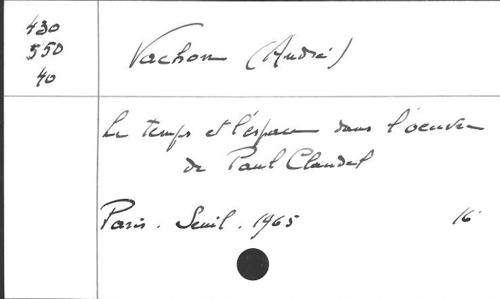 430
550
40
Vachon (André)
Le temps et l'espace dans l'oeuvre
de Paul Claudel
Paris. Seuil. 1965 16°